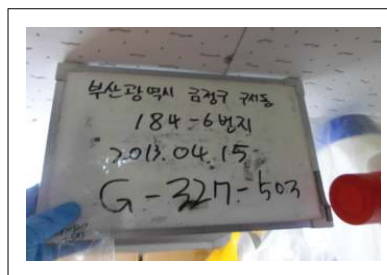 부산광역시 금정구 구서동
184-6번지
2013.04.15
G-327-503